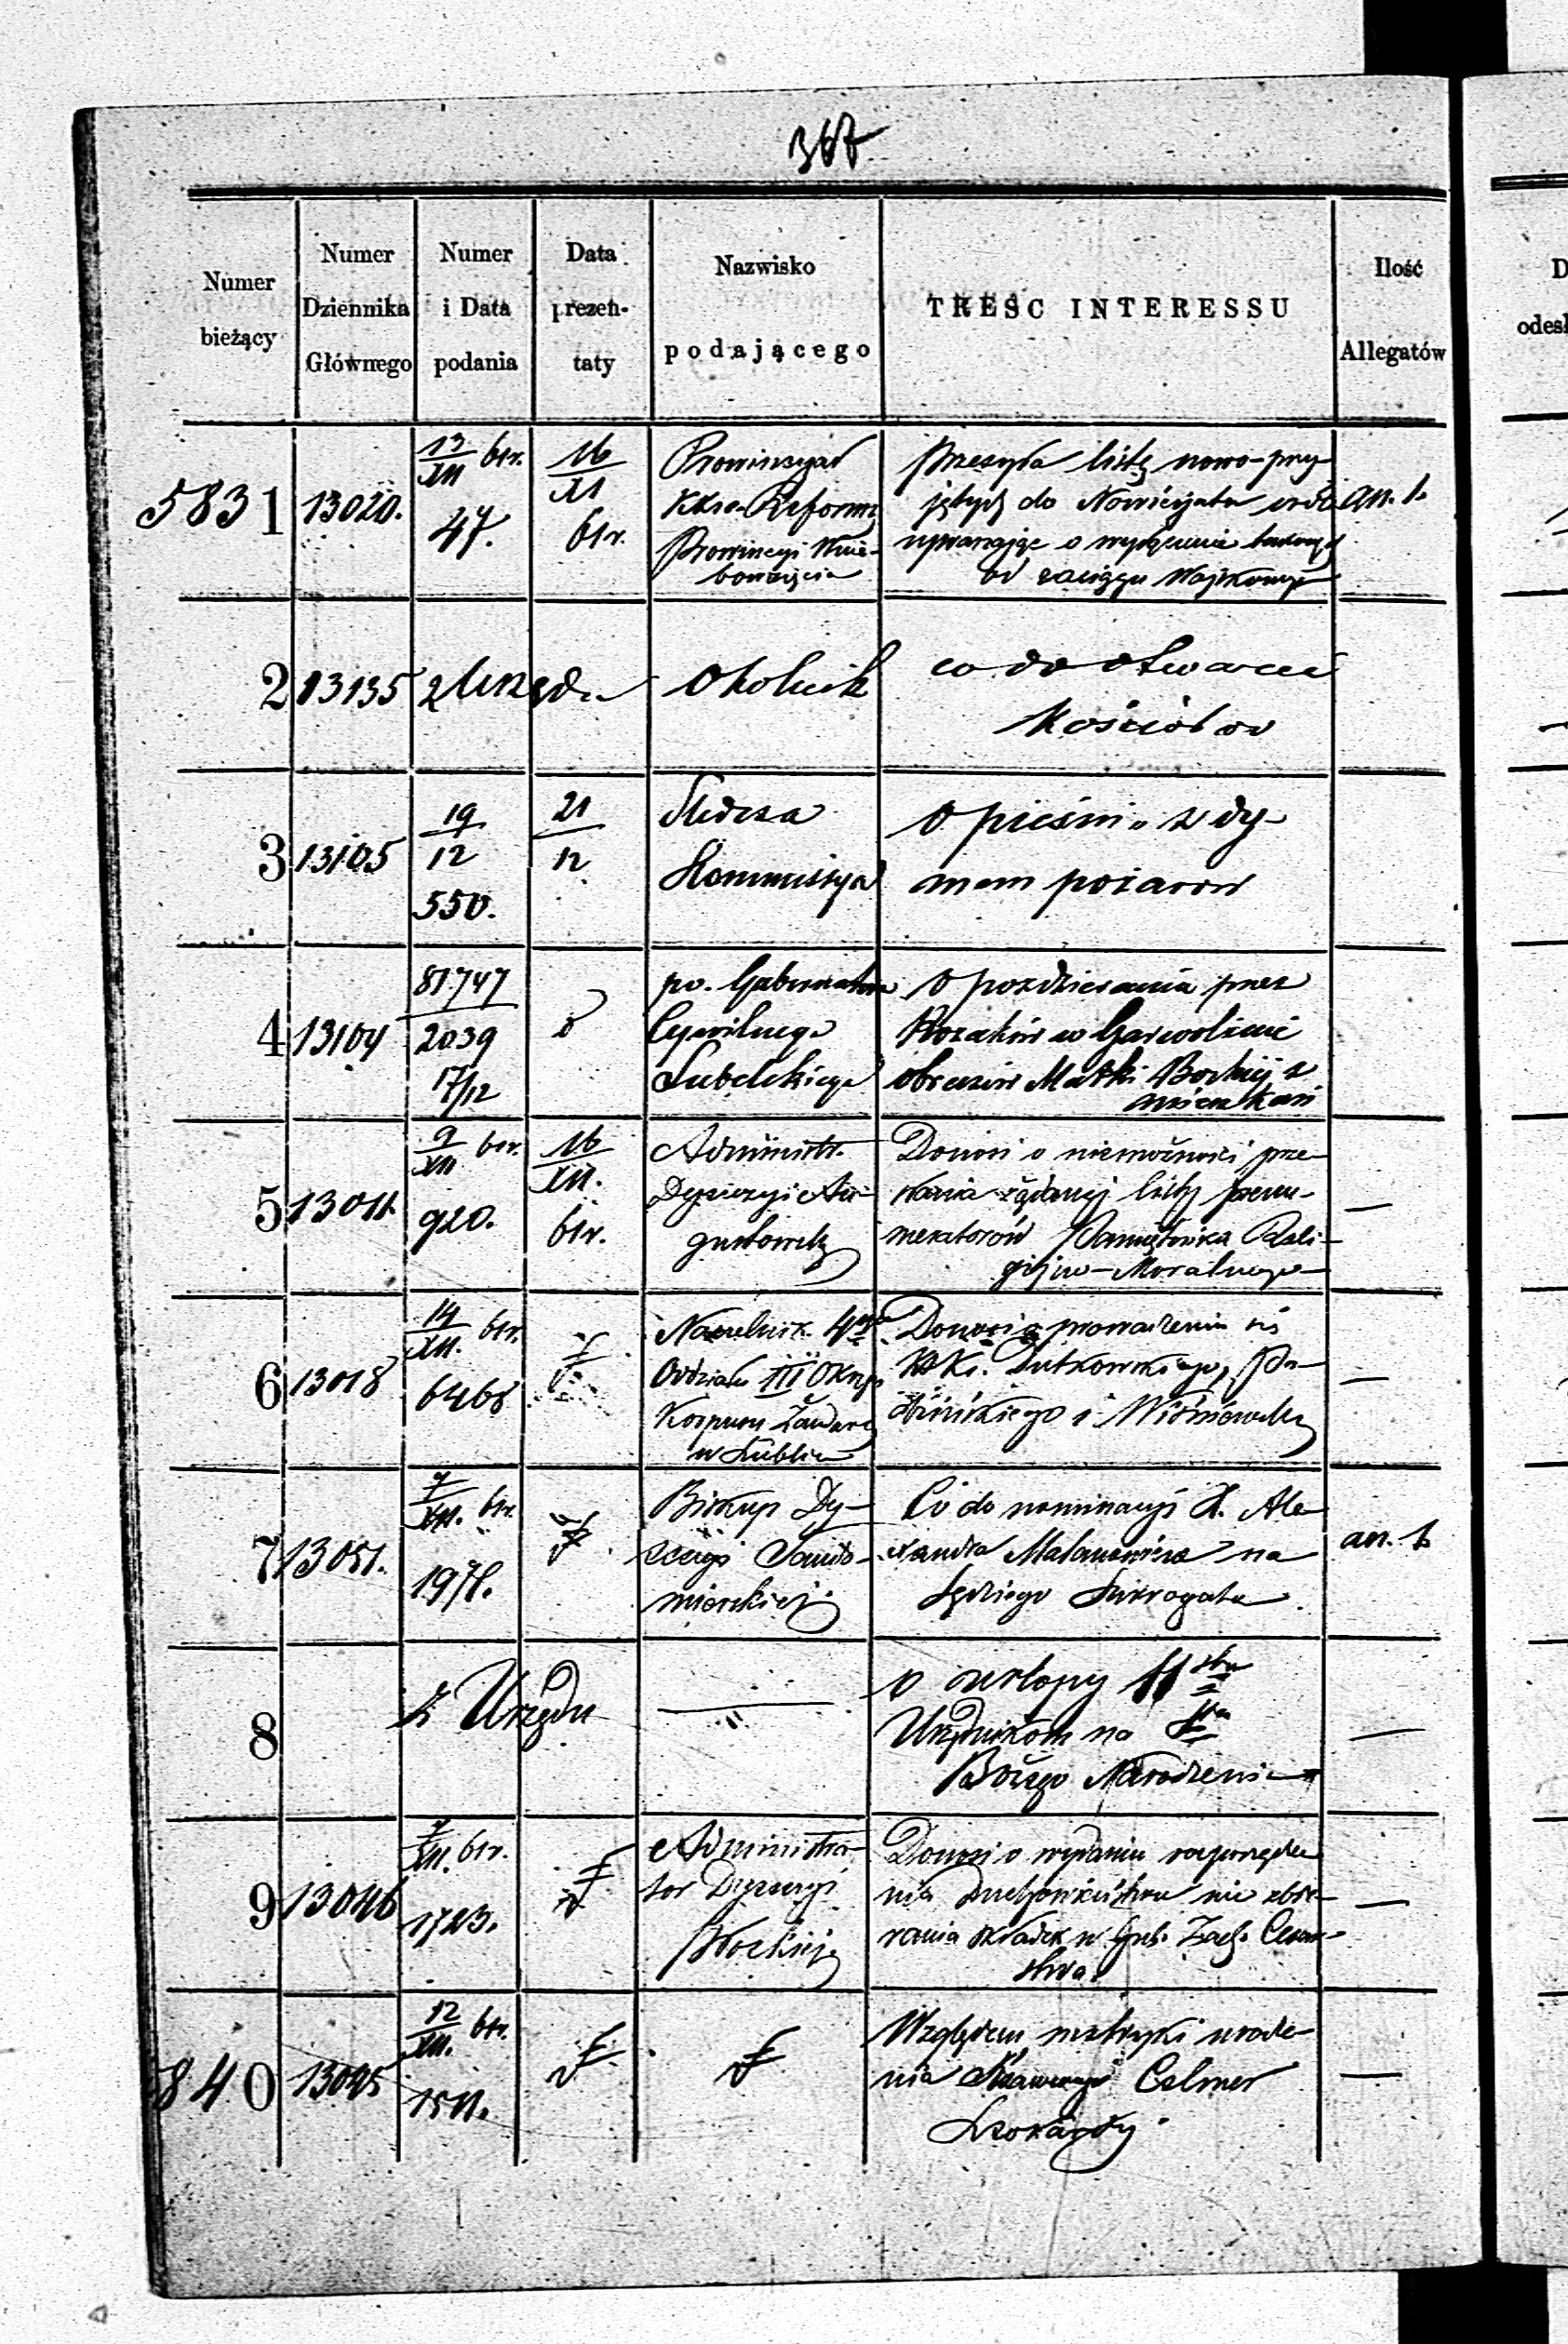 367
Numer bieżący
Numer Dziennika Głównego
Numer i Data podania
Data prezen-taty
Nazwisko podającego
TREŚĆ INTERESSU
Ilość Allegatów
D
odesł
5831
13020.
13/XII 61r.
47.
16/XI
61r.
Prowincyał
XXra Reforma
Prowincyi Wnie-
bowzięcia
przesyła listę nowo-przy-
jętych do Nowicyatu
upraszając o wyłączenie
od zaciągu Wojskowego
an. 1.
2
13135
z Urzędu
Okolnik
co do otwarcia
Kościołow
3
13105
19/12
550.
21/12
Śledcza
Kommissya
O pieśni "z dy-
mem pożarow
4
13104
81747
2039
17/12
po. Gubernatora
Cywilnego
Lubelskiego
O pozdzierania przez
Kozaków w Garwolinie
obrazów Matki Boskiej z
mieszkań
5
13011.
9/XII 61r.
920.
16/XII.
61r.
Administr.
Dyecezyi Au-
gustowsk
Donosi o niemożności prze-
słania żądanej listy prenu-
meratorów Pamiętnika Reli-
gijno-Moralnego
—
6
13018
14/XII. 61r.
6468
Naczelnik 4go
Oddziału III Okręgu
Korpusu Żandar
w Lublin
Donosi o prowadzeniu się
XX. Lutkowskiego,
i Wiśniewsk
—
7
13051.
7/XII. 61r.
1971.
Biskup Dy-
ecezyi Sando-
mierskiej
Co do nominacyi X. Ale-
xandra Malanowicza na
Sędziego Surrogata.
an. 1
8
z Urzędu
—
O urlopy 11stu
Urzędnikom na Sta
Bożego Narodzenia
—
9
13046
7/XII. 61r.
1723.
Administra-
tor Dyecezyi
Płockiej
Donosi o wydaniu rozporządze-
nia Duchowieństwu nie zbie-
rania składek w Gub. Zach. Cesar-
stwa.
—
840
13045
12/XII. 61r.
1511.
Względem metryki urodze-
nia Celmer
—